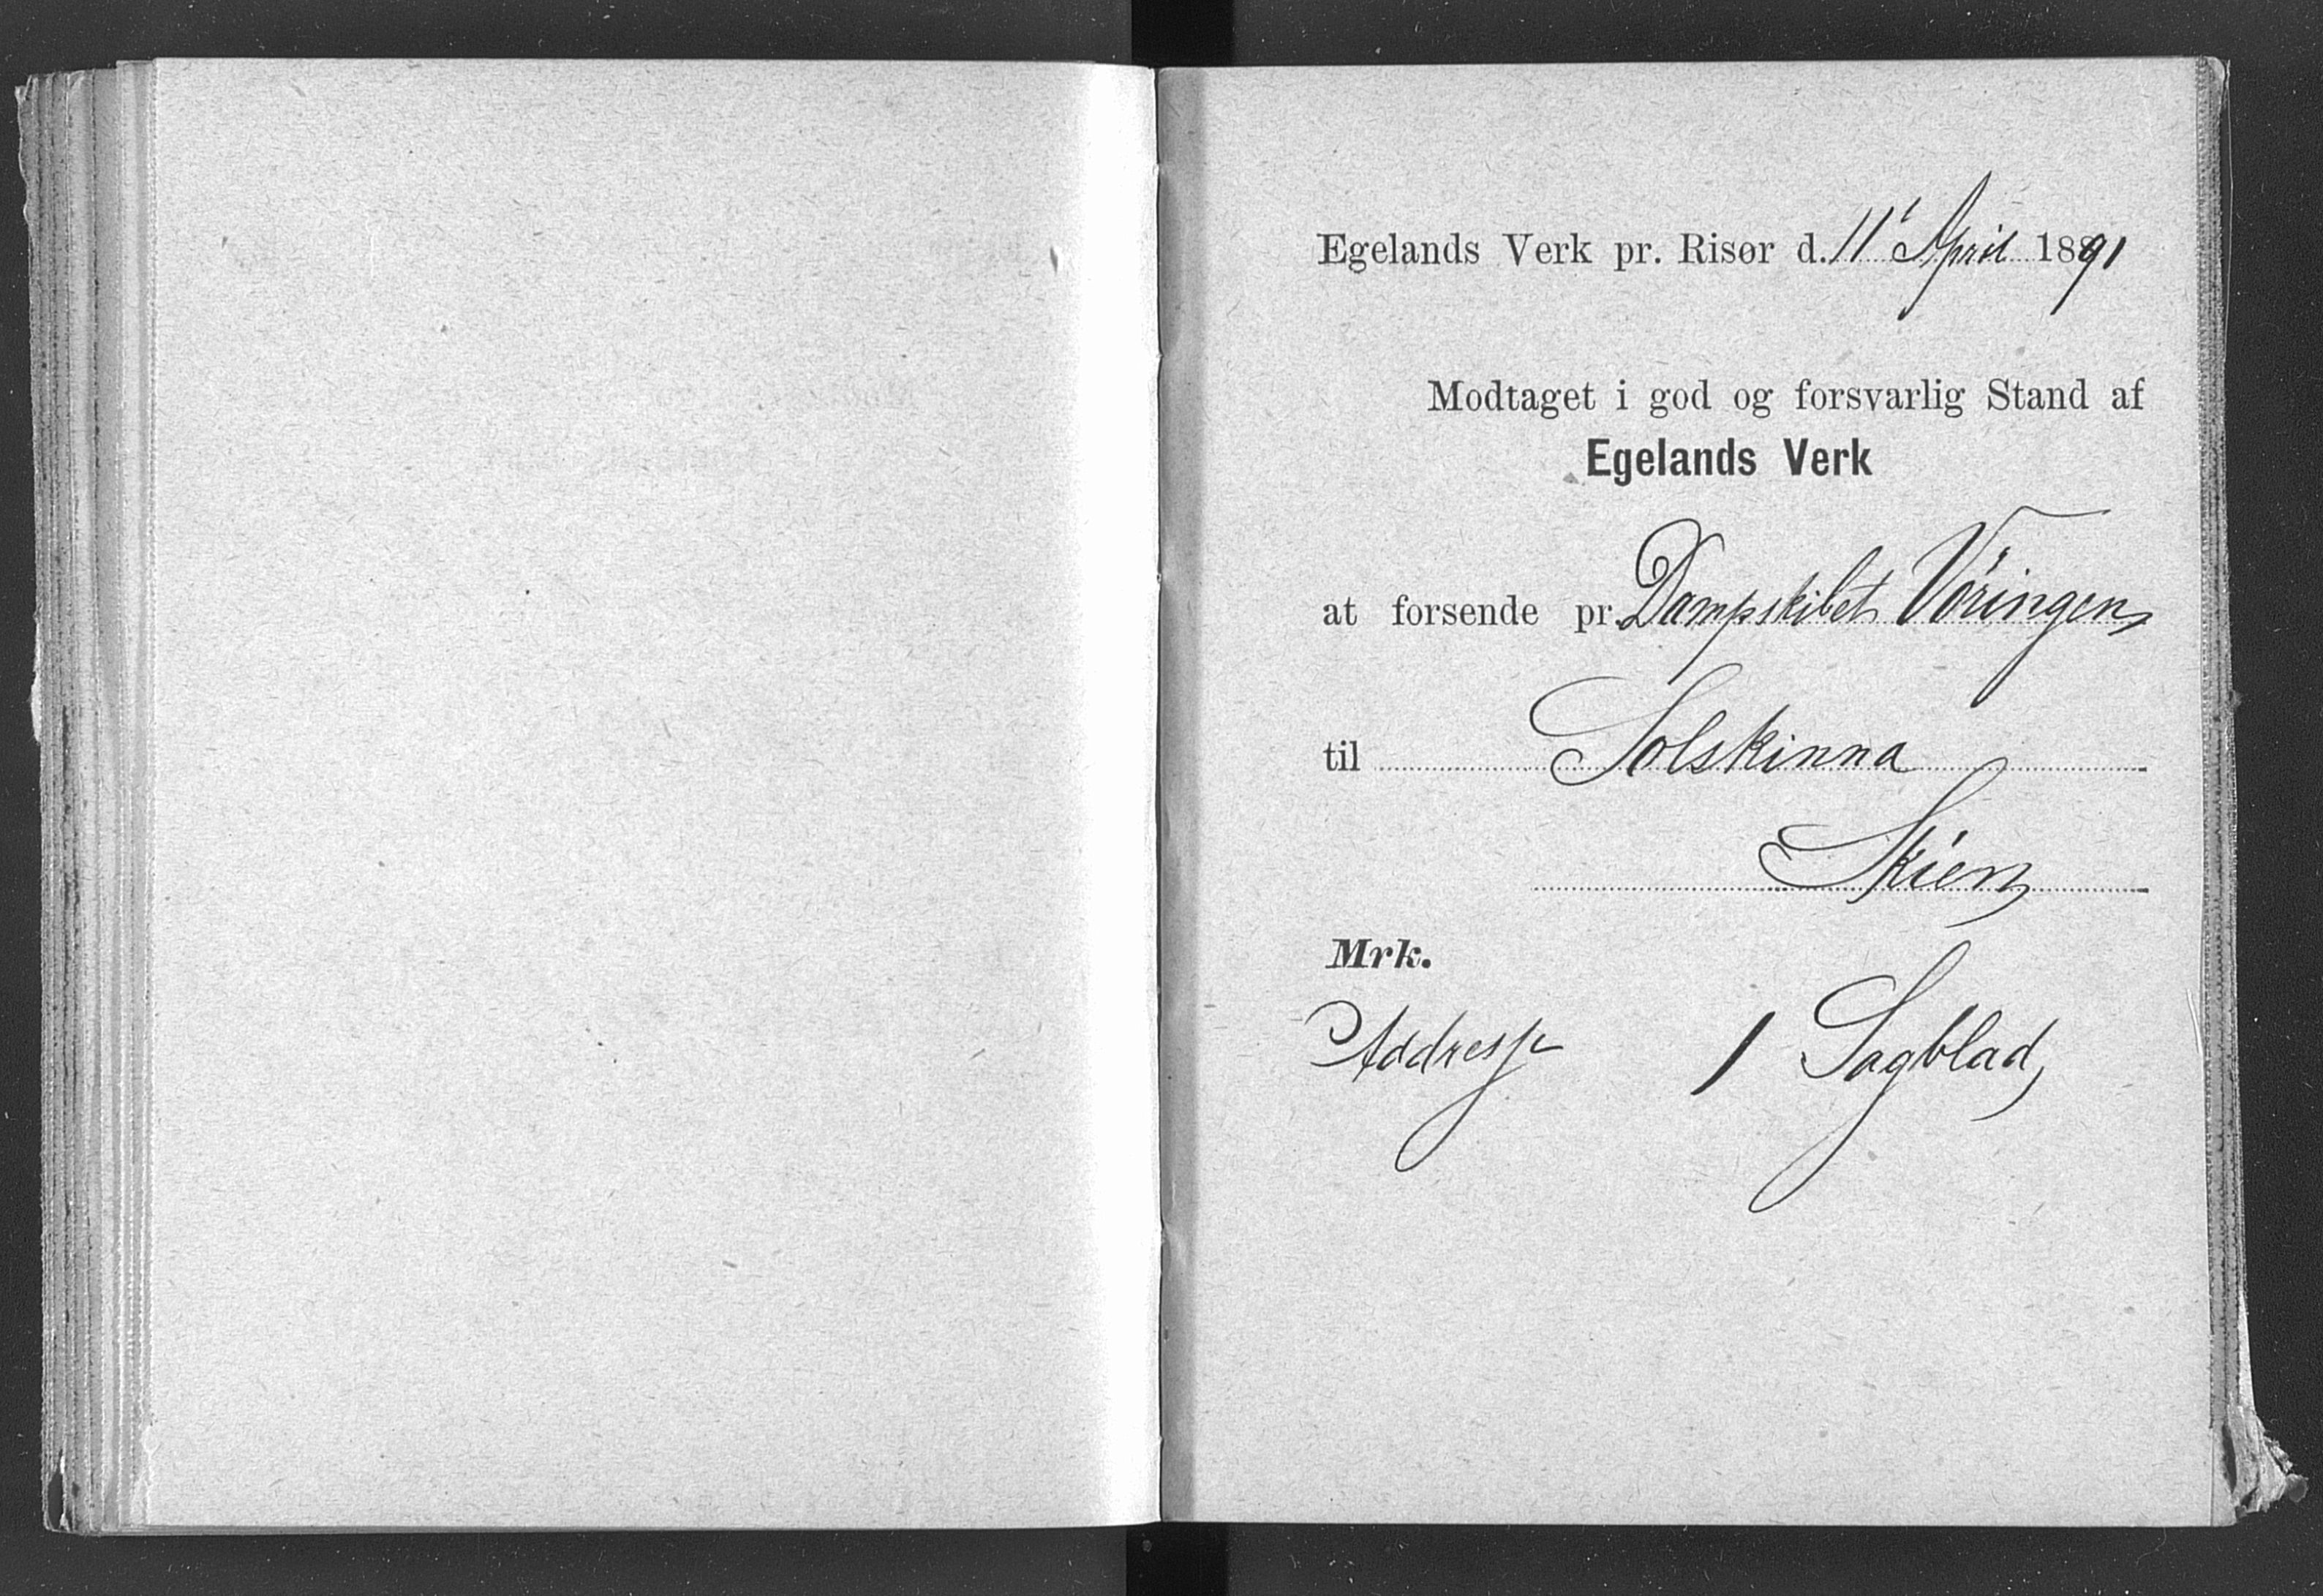 Egelands Verk pr. Risør d. 11' April 1891
Modtaget i god og forsvarlig Stand af
Egelands Verk
at forsende pr. Dampskibet Vöringen
til Solskinna
Skien
Mrk.
Addresse 1 Sagblad